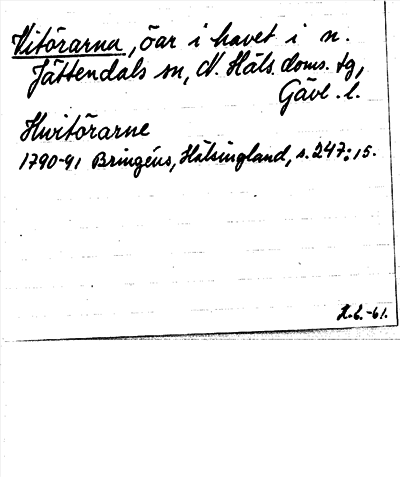 Vitörarna, öar i havet i n.
Jättendals sn, N. Häls. doms. tg,
Gävl. l.
Hwitörarne
1790-91 Bringéus, Hälsingland, s. 247:15.
H.L.-61.